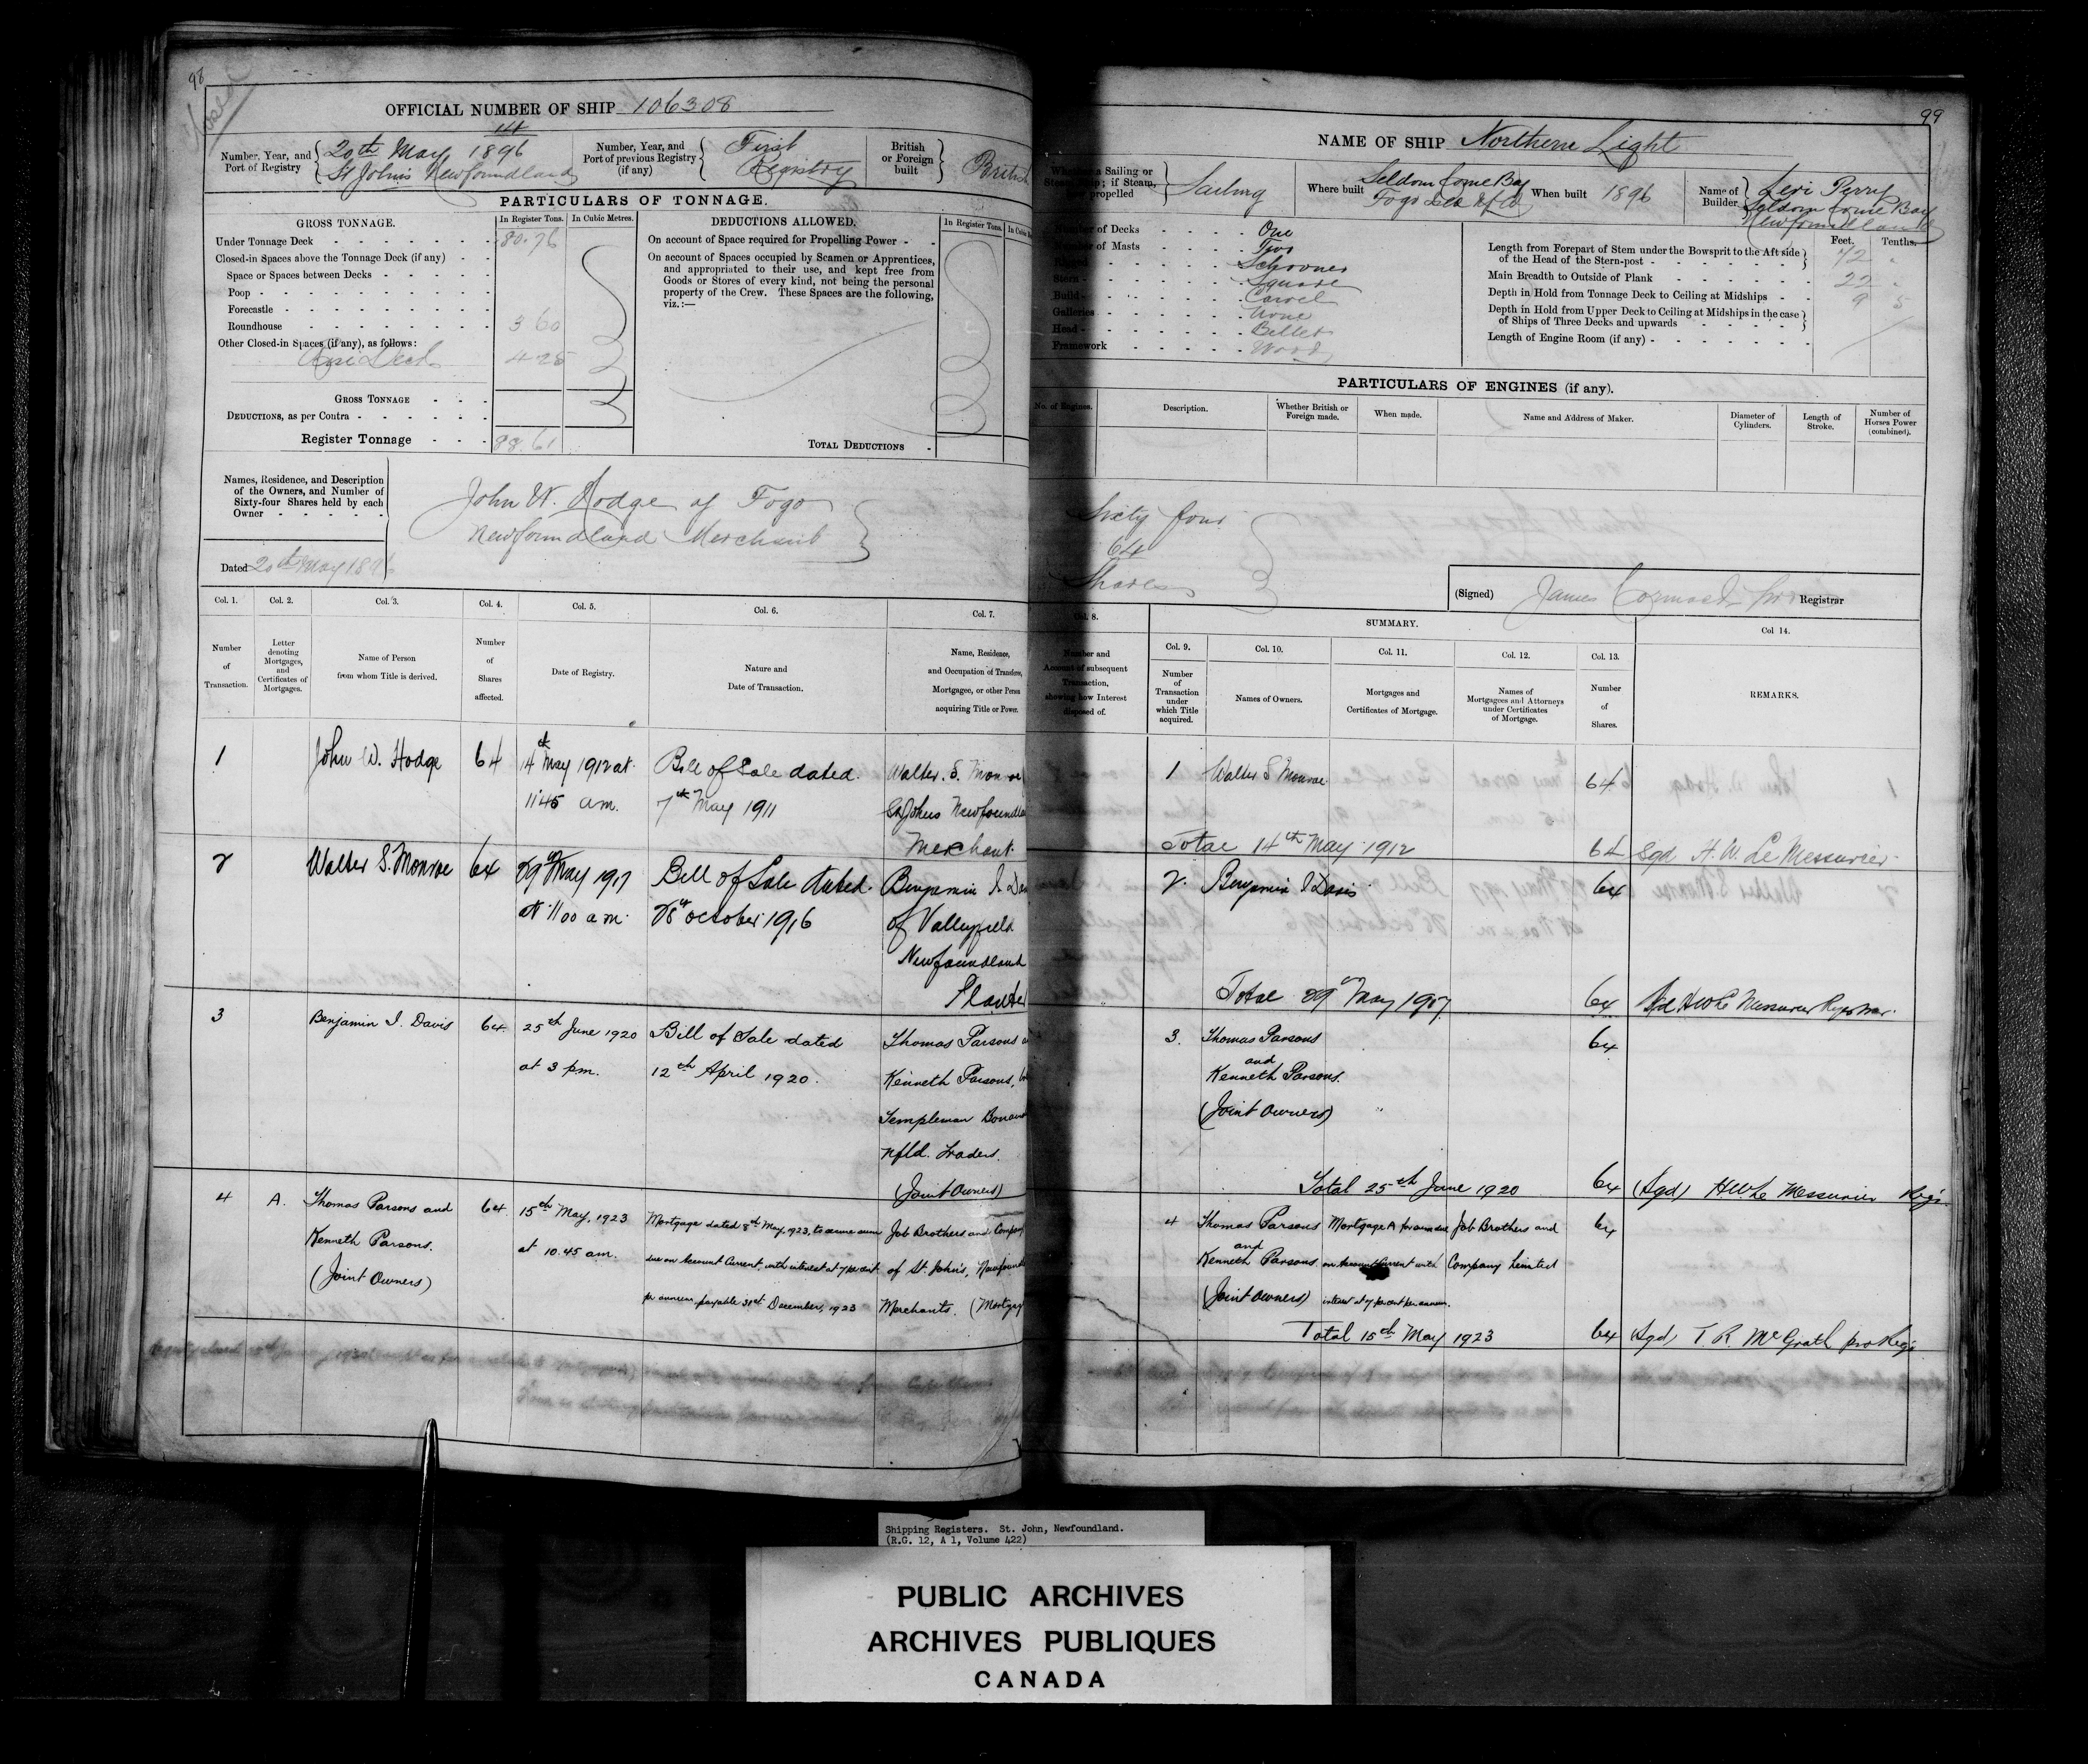 98
OFFICIAL NUMBER OF SHIP 106308
Number, Year, and Port of Registry
14
20th May 1896
St Johns Newfoundland
Number, Year, and Port of previous Registry (if any)
First Registry
British or Foreign built
British
PARTICULARS OF TONNAGE.
GROSS TONNAGE.
In Register Tons.
In Cubic Metres.
Under Tonnage Deck 80.76
Closed-in Spaces above the Tonnage Deck (if any)
Space or Spaces between Decks
Poop
Forecastle
Roundhouse 3 60
Other Closed-in Spaces (if any), as follows:
4 25
GROSS TONNAGE
DEDUCTIONS, as per Contra
Register Tonnage 88.61
DEDUCTIONS ALLOWED.
In Register Tons.
On account of Space required for Propelling Power
On account of Spaces occupied by Seamen or Apprentices,
and appropriated to their use, and kept free from
Goods or Stores of every kind, not being the personal
property of the Crew. These Spaces are the following,
viz.:—
TOTAL DEDUCTIONS
Names, Residence, and Description
of the Owners, and Number of
Sixty-four Shares held by each
Owner
John W. Hodge of Fogo
Newfoundland Merchant
Dated 20th May 1896
Col. 1.
Number of Transaction.
Col. 2.
Letter denoting Mortgages, and Certificates of Mortgages.
Col. 3.
Name of Person from whom Title is derived.
Col. 4.
Number of Shares affected.
Col. 5.
Date of Registry.
Col. 6.
Nature and Date of Transaction.
Col. 7.
Name, Residence, and Occupation of Transferee, Mortgagee, or other Person acquiring Title or Power.
1 John W. Hodge 64 14th May 1912 at Bill of Sale dated Walter. S. Monroe
11.45 am. 7th May 1911 St Johns Newfoundland
Merchant
2 Walter S. Monroe 64 29th May 1917 Bill of Sale dated Benjamin I Davis
at 11.00 am 28th October 1916 of Valleyfield
Newfoundland
Planter
3 Benjamin I. Davis 64 25th June 1920 Bill of Sale dated Thomas Parsons
at 3 pm. 12th April 1920. Kenneth Parsons,
Templeman
Nfld. Traders.
(Joint Owners)
4 A. Thomas Parsons and 64 15th May, 1923 Mortgage dated 8th May, 1923, to secure sum Job Brothers and Company
Kenneth Parsons. at 10.45 am. due on Account Current, with interest at 7 per cent of St. John's,
(Joint Owners) per annum, payable 31st December, 1923 Merchants.
99
NAME OF SHIP Northern Light
Whether a Sailing or Steam Ship; if Steam, how propelled
Sailing
Where built
Seldom Come Bay
Fogo
When built 1896
Name of Builder
Levi Perry
Seldom Come Bay
Newfoundland
Number of Decks One
Number of Masts Two
Rigged Schooner
Stern Square
Build Carvel
Galleries None
Head Billet
Framework Wood
Feet. Tenths.
Length from Forepart of Stem under the Bowsprit to the Aft side
of the Head of the Stern-post 72
Main Breadth to Outside of Plank 22
Depth in Hold from Tonnage Deck to Ceiling at Midships 9 5
Depth in Hold from Upper Deck to Ceiling at Midships in the case
of Ships of Three Decks and upwards
Length of Engine Room (if any)
PARTICULARS OF ENGINES (if any).
No. of Engines.
Description.
Whether British or Foreign made.
When made.
Name and Address of Maker.
Diameter of Cylinders.
Length of Stroke.
Number of Horses Power (combined).
Sixty four
64
Shares
(Signed) James Cormack Registrar
Col. 8.
Number and Account of subsequent Transaction, showing how Interest disposed of.
SUMMARY.
Col. 9.
Number of Transaction under which Title acquired.
Col. 10.
Names of Owners.
Col. 11.
Mortgages and Certificates of Mortgage.
Col. 12.
Names of Mortgagees and Attorneys under Certificates of Mortgage.
Col. 13.
Number of Shares.
Col 14.
REMARKS.
1 Walter S Monroe 64
Total 14th May 1912 64 Sgd H. W. Le Messurier
2 Benjamin I Davis 64
Total 29th May 1917 64 Sgd HW Le Messurier Registrar.
3. Thomas Parsons 64
and
Kenneth Parsons.
(Joint Owners)
Total 25th June 1920 64 (Sgd) HW Le Messurier Regr
4 Thomas Parsons Mortgage A for sum due Job Brothers and 64
and
Kenneth Parsons on Account Current with Company Limited
(Joint Owners) interest at 7 per cent per annum.
Total 15th May 1923 64 (Sgd) T. R. McGrath pro Regr
Shipping Registers. St. John, Newfoundland.
(R.G. 12, A 1, Volume 422)
PUBLIC ARCHIVES
ARCHIVES PUBLIQUES
CANADA